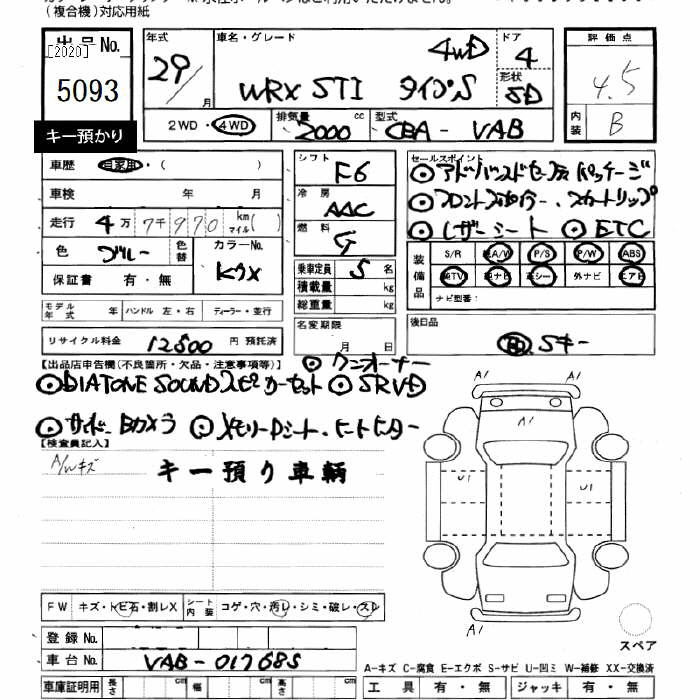 (複合機)対応用紙
出品No. [2020] 5093
キー預かり
年式 29/ 月
車名・グレード WRX STI タイプS 4WD
ドア 4
形状 SD
評価点 4.5
内装 B
2WD・4WD 排気量 2000 cc 型式 CBA - VAB
車歴 自家用・( )
車検 年 月
走行 4万7千970 km マイル( )
色 ブルー 色替 カラーNo. K7X
保証書 有・無
シフト F6
冷房 AAC
燃料 G
乗車定員 5 名
積載量 kg
総重量 kg
セールスポイント
アドバンスドセーフティパッケージ
フロントスポイラー、スカートリップ
レザーシート ETC
装備品 S/R 純A/W P/S P/W ABS
純TV 純ナビ 革シート 外ナビ エアB
ナビ型番:
モデル年式 年 ハンドル 左・右 ディーラー・並行
名変期限 月 日
後日品
リサイクル料金 12500 円 預託済
Sキー
【出品店申告欄(不良箇所・欠品・注意事項等)】 ワンオーナー
DIATONE SOUNDスピーカーセット SRVD
サイド、Bカメラ メモリーPシート、シートヒーター
【検査員記入】
A/Wキズ キー預り車輌
A1 A1
A1
U1 U1
A1
FW キズ・トビ石・割レX シート内装 コゲ・穴・汚レ・シミ・破レ・スレ
スペア
登録No.
車台No. VAB - 017685
A-キズ C-腐食 E-エクボ S-サビ U-凹ミ W-補修 XX-交換済
車庫証明用 長さ cm 幅 cm 高さ cm 工具 有・無 ジャッキ 有・無